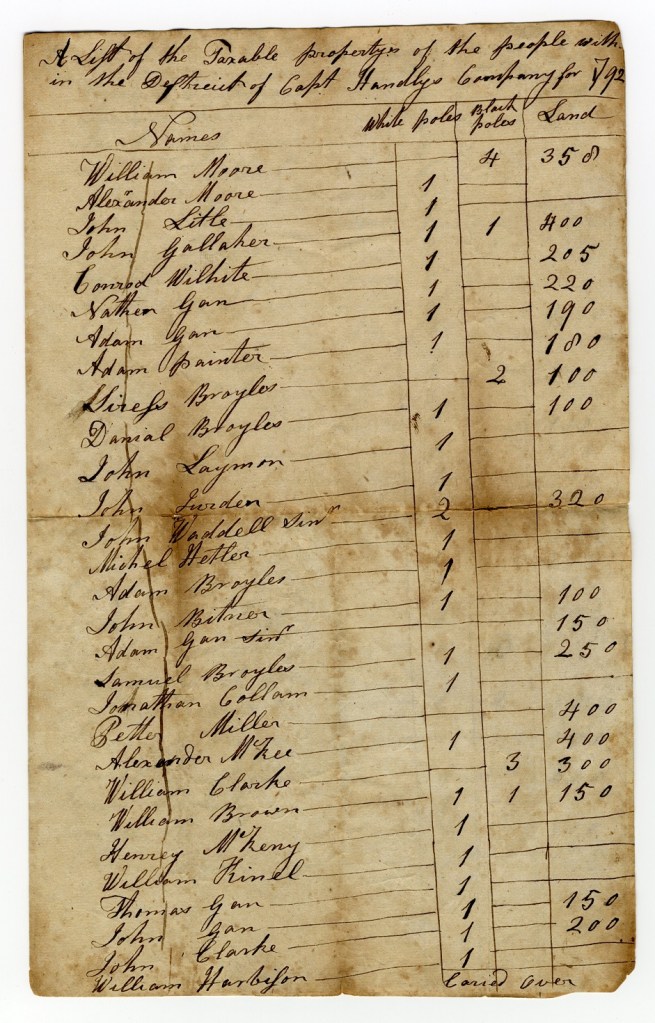 A List of the Taxable propertys of the people with
in the Destrict of Capt Handlys Company for 792
Names White poles Black poles Land
William Moore 4 358
Alexander Moore 1
John Litle 1
John Gallaher 1 1 400
Conrod Wilhite 1 205
Nathen Gan 1 220
Adam Gan 1 190
Adam Painter 1 180
Siress Broyles 2 100
Danial Broyles 1 100
John Laymon 1
John Jurden 1
John Waddell sinr 2 320
Michel Hetler 1
Adam Broyles 1
John Bitner 1 100
Adam Gan sinr 150
Samuel Broyles 1 250
Jonathan Collam 1
Petter Miller 400
Alexander McKee 1 400
William Clarke 3 300
William Brown 1 1 150
Henrey McKeny 1
William Kinel 1
Thomas Gan 1
John Gan 1 150
John Clarke 1 200
William Harbison 1
Caried over